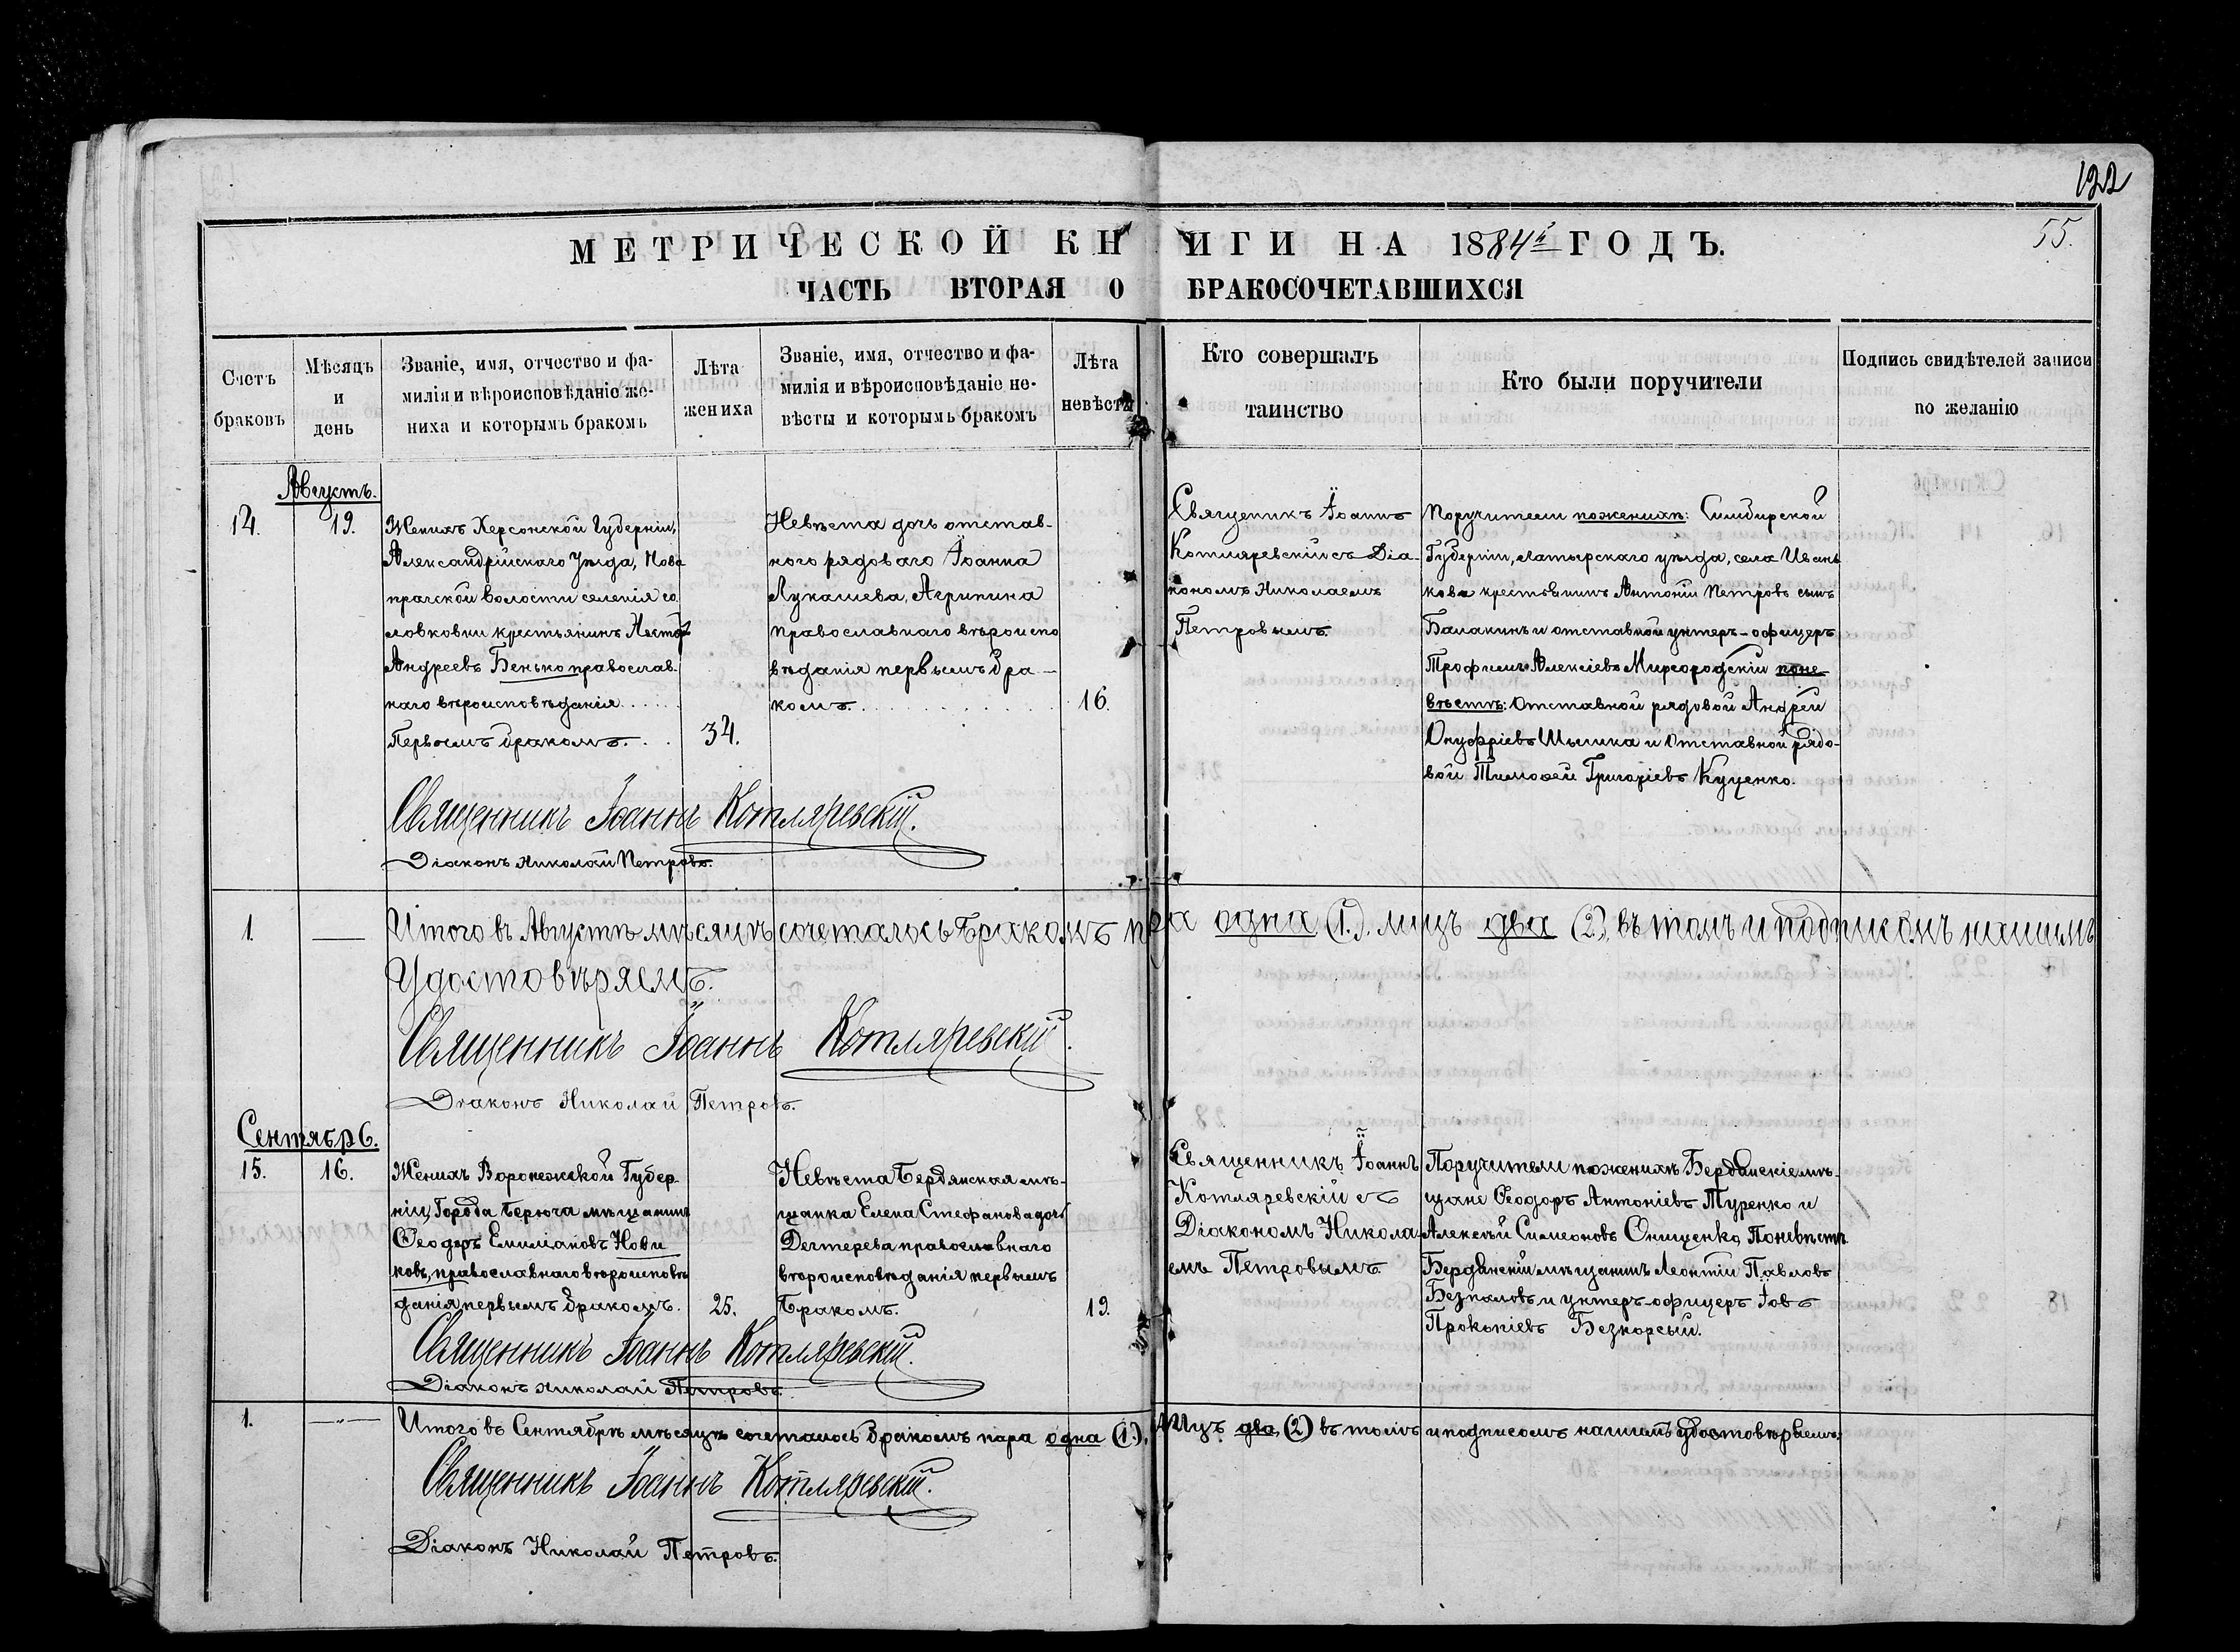 122
55.
МЕТРИЧЕСКОЙ КНИГИ НА 1884й ГОДЪ.
ЧАСТЬ ВТОРАЯ О БРАКОСОЧЕТАВШИХСЯ
Счетъ
браковъ
Мѣсяцъ
и
день
Званіе, имя, отчество и фа-
милія и вѣроисповѣданіе же-
ниха и которымъ бракомъ
Лѣта
жениха
Званіе, имя, отчество и фа-
милія и вѣроисповѣданіе не-
вѣсты и которымъ бракомъ
Лѣта
невѣсты
Кто совершалъ
таинство
Кто были поручители
Подпись свидѣтелей записи
по желанію
Августъ.
14.
19.
Женихъ Херсонской Губерніи,
Александрійскаго Уѣзда, Ново
прагской волости селенія
крестьянинъ Несторъ
Андреевъ Бенько православ-
наго вѣроисповѣданія
Первымъ бракомъ.
34.
Невѣста дочь отстав-
ного рядоваго Іоанна
Лукашева, Агрипина
православнаго вѣроиспо
вѣданія первымъ бра-
комъ.
16.
Священикъ Іоаннъ
Котляревскій съ Діа-
кономъ Николаемъ
Петровымъ.
Поручители по женихѣ: Симбирской
Губерніи, Латырскаго уѣзда, села Ивань
кова крестьянинъ Антоній Петровъ сынъ
Балакинъ и отставной унтеръ-офицеръ
Трофимъ Алексіевъ Миргородскій по не
вѣстѣ: Отставной рядовой Андрей
Онуфріевъ и Отставной рядо-
вой Тимофей Григоріевъ Куценко.
Священникъ Іоаннъ Котляревскій.
Діаконъ Николай Петровъ.
1.
—
Итого въ Августѣ мѣсяцѣ сочеталось Бракомъ пара одна (1.). лицъ два (2), въ томъ и подписомъ нашимъ
Удостовѣряемъ.
Священникъ Іоаннъ Котляревскій.
Діаконъ Николай Петровъ.
Сентябрь.
15.
16.
Женихъ Воронежской Губер-
ніи, Города Берюча мѣщанинъ
Ѳеодоръ Емиліановъ Нови
ковъ, православнаго вѣроисповѣ
данія первымъ бракомъ.
25.
Невѣста Бердянская мѣ-
щанка Елена Стефанова дочь
Дегтерева православнаго
вѣроисповѣданія первымъ
Бракомъ.
19.
Священникъ Іоаннъ
Котляревскій съ
Діакономъ Никола-
емъ Петровымъ.
Поручители по женихѣ Бердянскіе мѣ-
щане Ѳеодоръ Антоніевъ Туренко и
Алексѣй Симеоновъ Онищенко, По невѣстѣ
Бердянскій мѣщанинъ Леонтій Павловъ
Безпаловъ и унтеръ-офицеръ Іовъ
Прокопіевъ
Священникъ Іоаннъ Котляревскій.
Діаконъ Николай Петровъ.
1.
—"—
Итого въ Сентябрѣ мѣсяцѣ сочеталось бракомъ пара одна (1.), лицъ два (2) въ томъ и подписомъ нашимъ удостовѣряемъ:
Священникъ Іоаннъ Котляревскій.
Діаконъ Николай Петровъ.